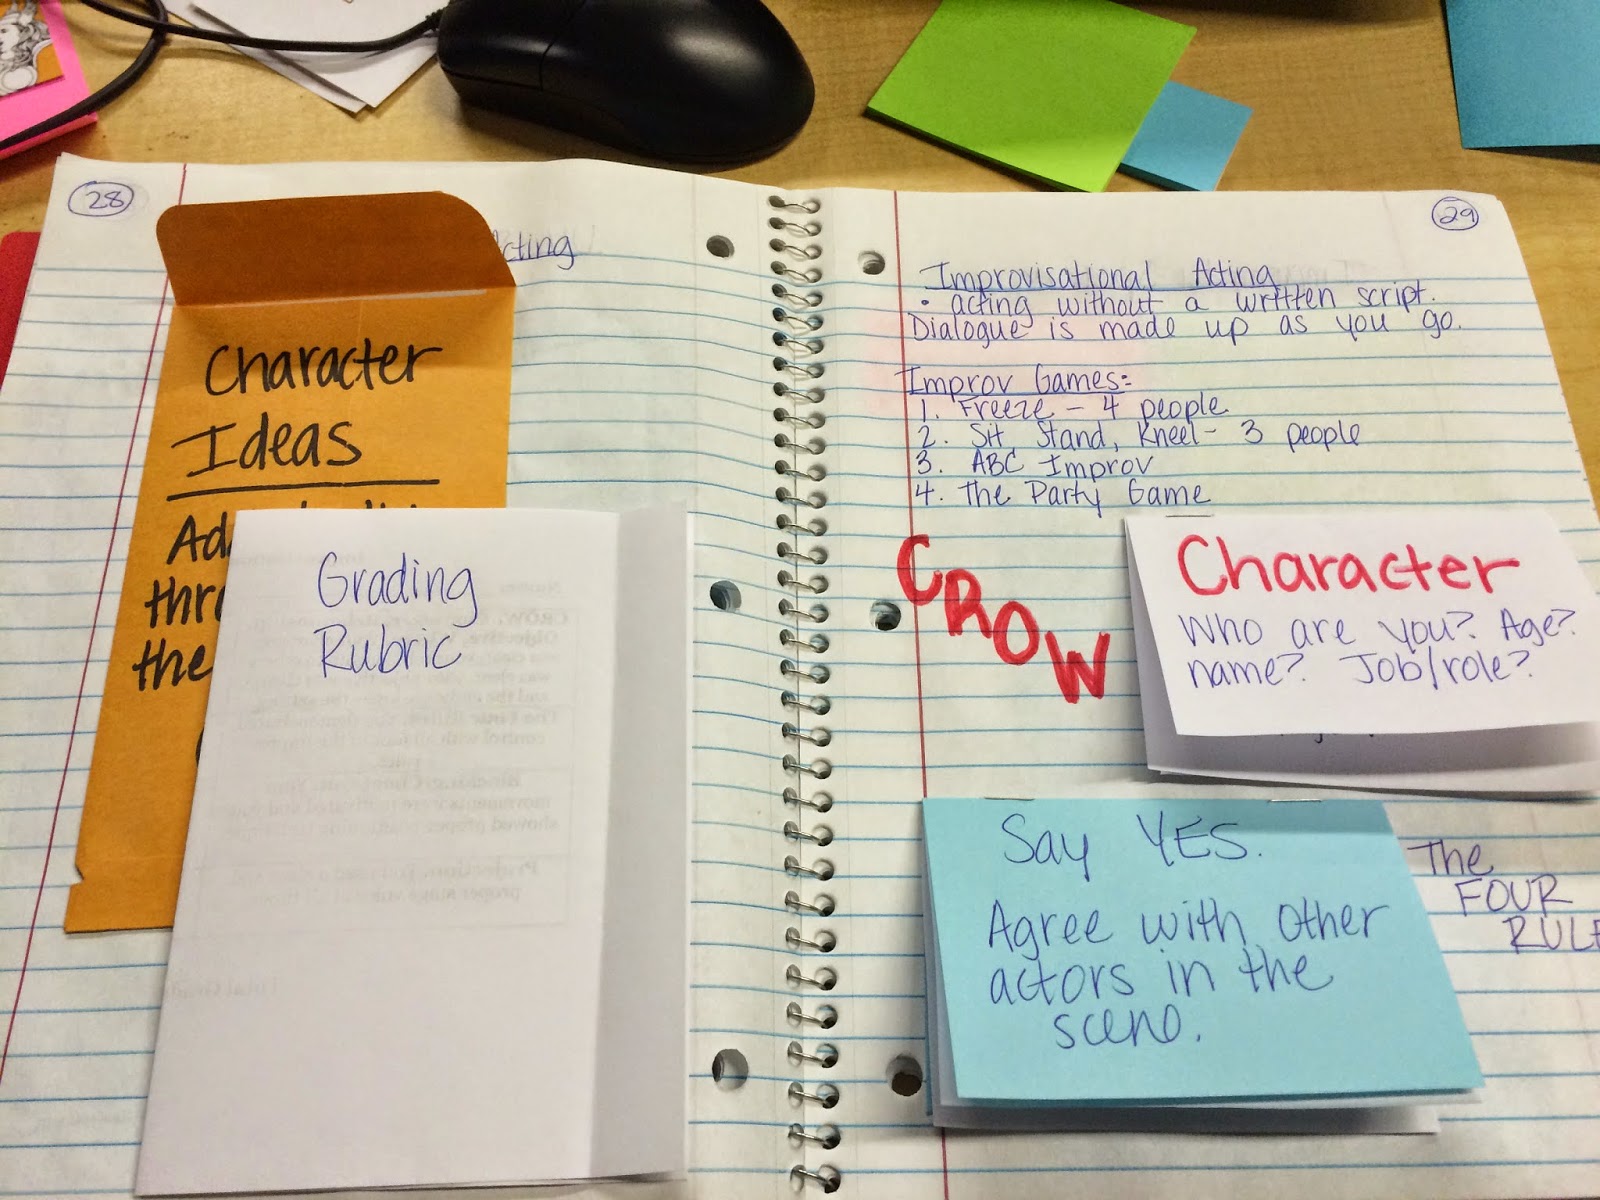 28
Acting
Character
Ideas
the
Grading
Rubric
29
Improvisational Acting
• acting without a written script.
Dialogue is made up as you go.
Improv Games:
1. Freeze - 4 people
2. Sit, Stand, Kneel - 3 people
3. ABC Improv
4. The Party Game
CROW
Character
Who are you? Age?
name? Job/role?
Say YES.
Agree with other
actors in the
scene.
The
FOUR